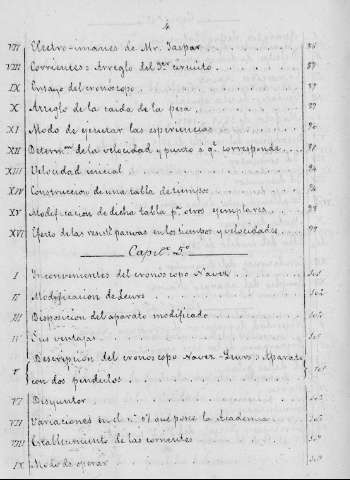 4
VII Electro-imanes de Mr. Jaspar
VIII Corrientes: Arreglo del 3er circuito
IX Ensayo del cronóscopo
X Arreglo de la caida de la pesa
XI Modo de ejecutar las esperiencias
XII Determon de la velocidad y punto á qe corresponde
XIII Velocidad inicial
XIV Construccion de una tabla de tiempos
XV Modificacion de dicha tabla pa otros ejemplares
XVI Efecto de las pasivas en los tiempos y velocidades
Capilo 5o
I Inconvenientes del cronóscopo Navez
II Modificacion de Leurs
III Disposicion del aparato modificado
IV Sus ventajas
V Descripcion del cronóscopo Navez-Leurs: Aparato
con dos péndulos
VI Disyuntor
VII Variaciones en el que posee la Academia
VIII Establecimiento de las corrientes
IX Modo de operar